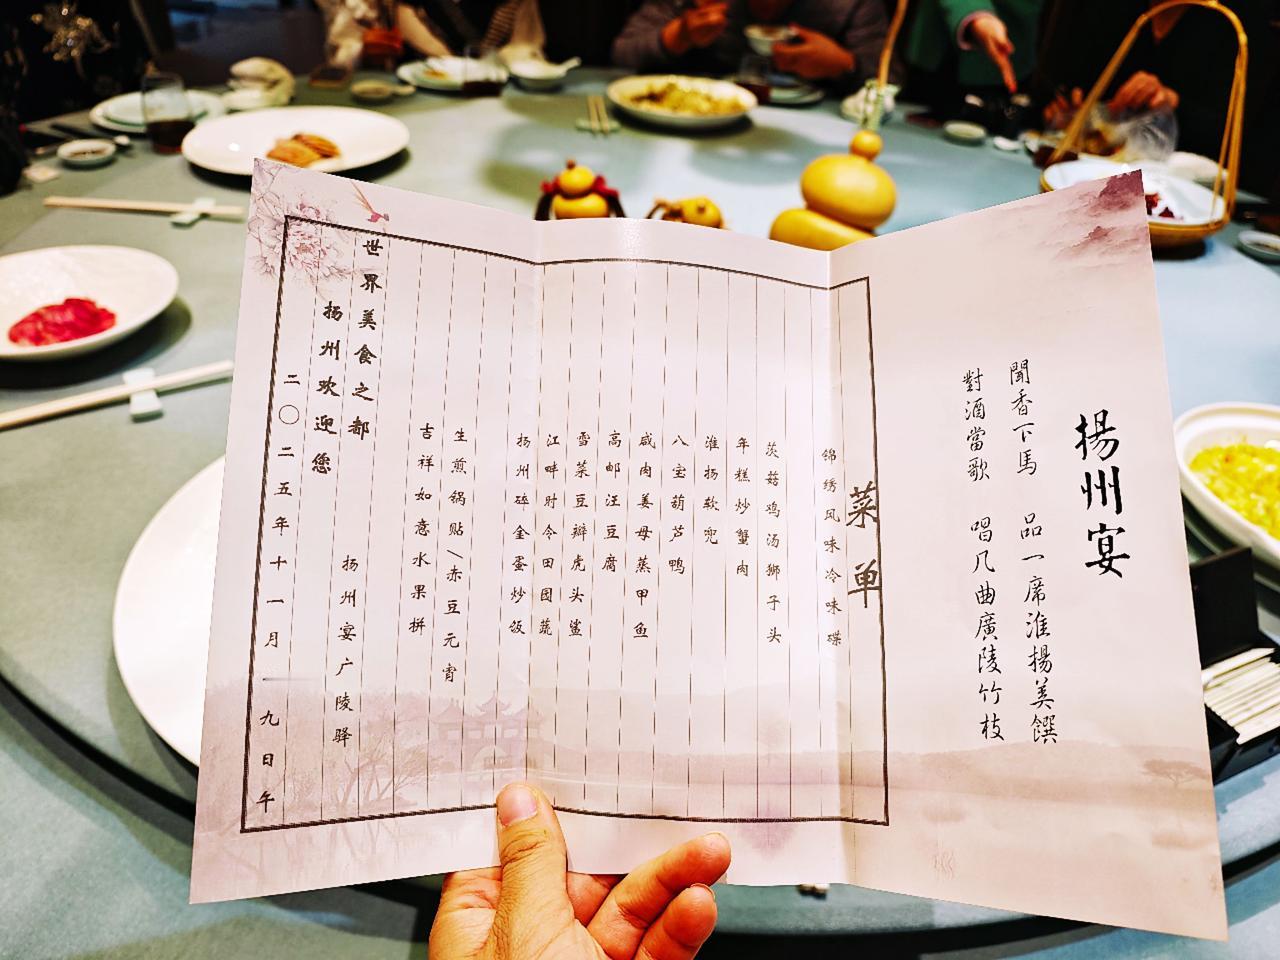 揚州宴
聞香下馬 品一席淮揚美饌
對酒當歌 唱几曲廣陵竹枝
菜单
锦绣风味冷味碟
茨菇鸡汤狮子头
年糕炒蟹肉
淮扬软兜
八宝葫芦鸭
咸肉姜母蒸甲鱼
高邮汪豆腐
雪菜豆瓣虎头鲨
江畔时令田园蔬
扬州碎金蛋炒饭
生煎锅贴/赤豆元宵
吉祥如意水果拼
世界美食之都
扬州宴广陵驿
扬州欢迎您
二〇二五年十一月一九日午